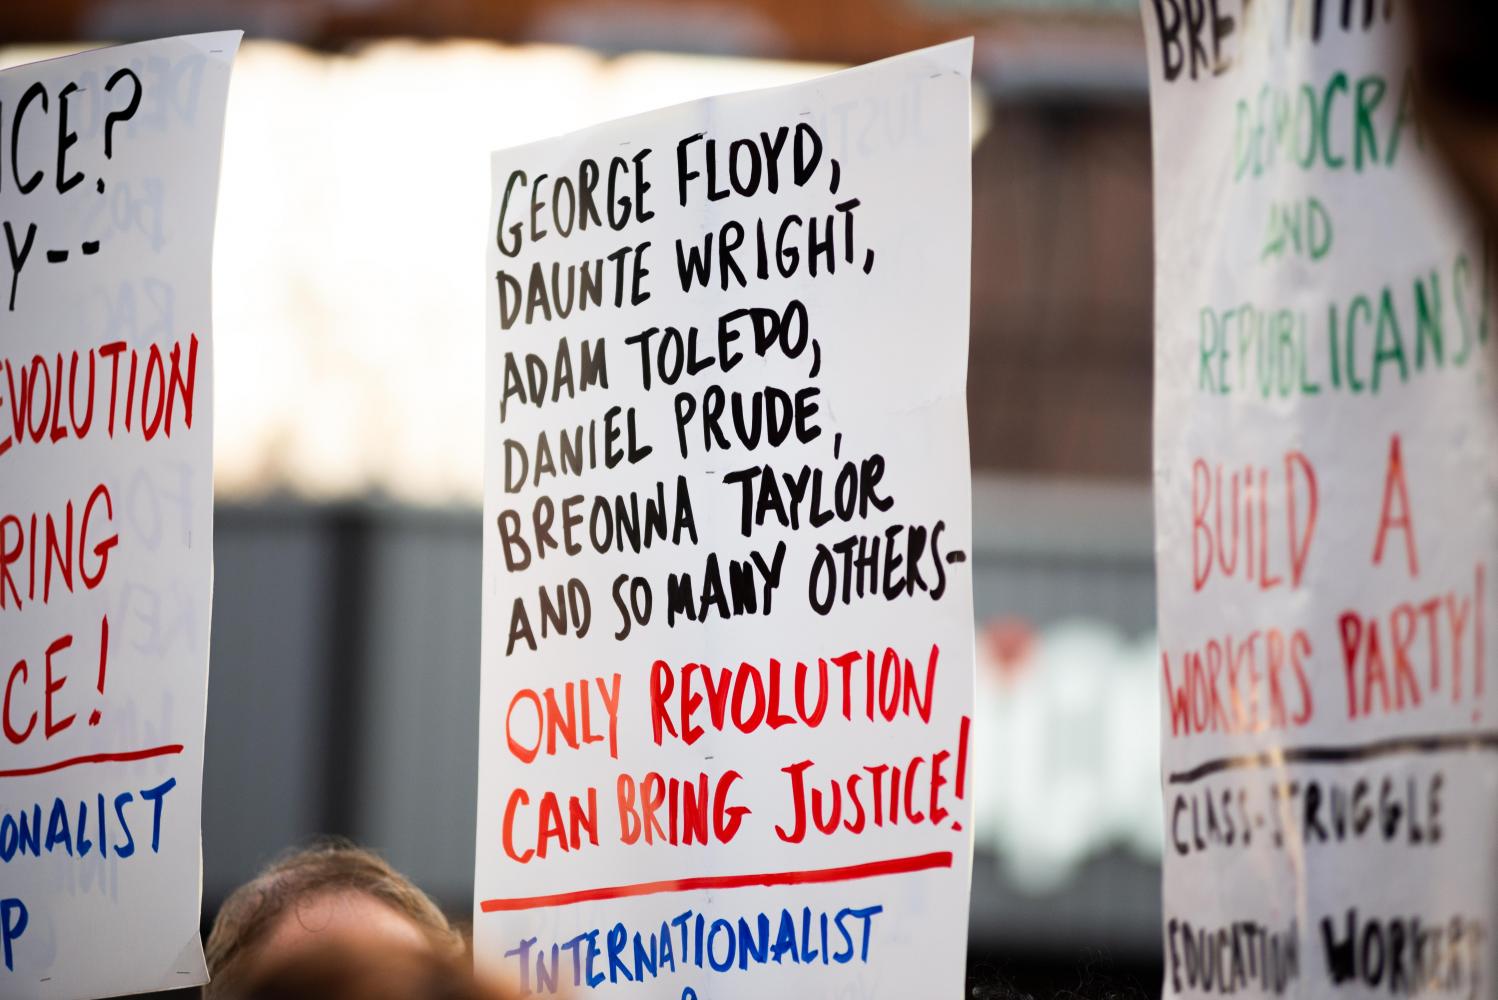 ICE?
Y--
EVOLUTION
RING
CE!
ONALIST
P
GEORGE FLOYD,
DAUNTE WRIGHT,
ADAM TOLEDO,
DANIEL PRUDE,
BREONNA TAYLOR
AND SO MANY OTHERS-
ONLY REVOLUTION
CAN BRING JUSTICE!
INTERNATIONALIST
DEMOCRA
AND
REPUBLICANS!
BUILD A
WORKERS PARTY!
CLASS-STRUGGLE
EDUCATION WORKERS